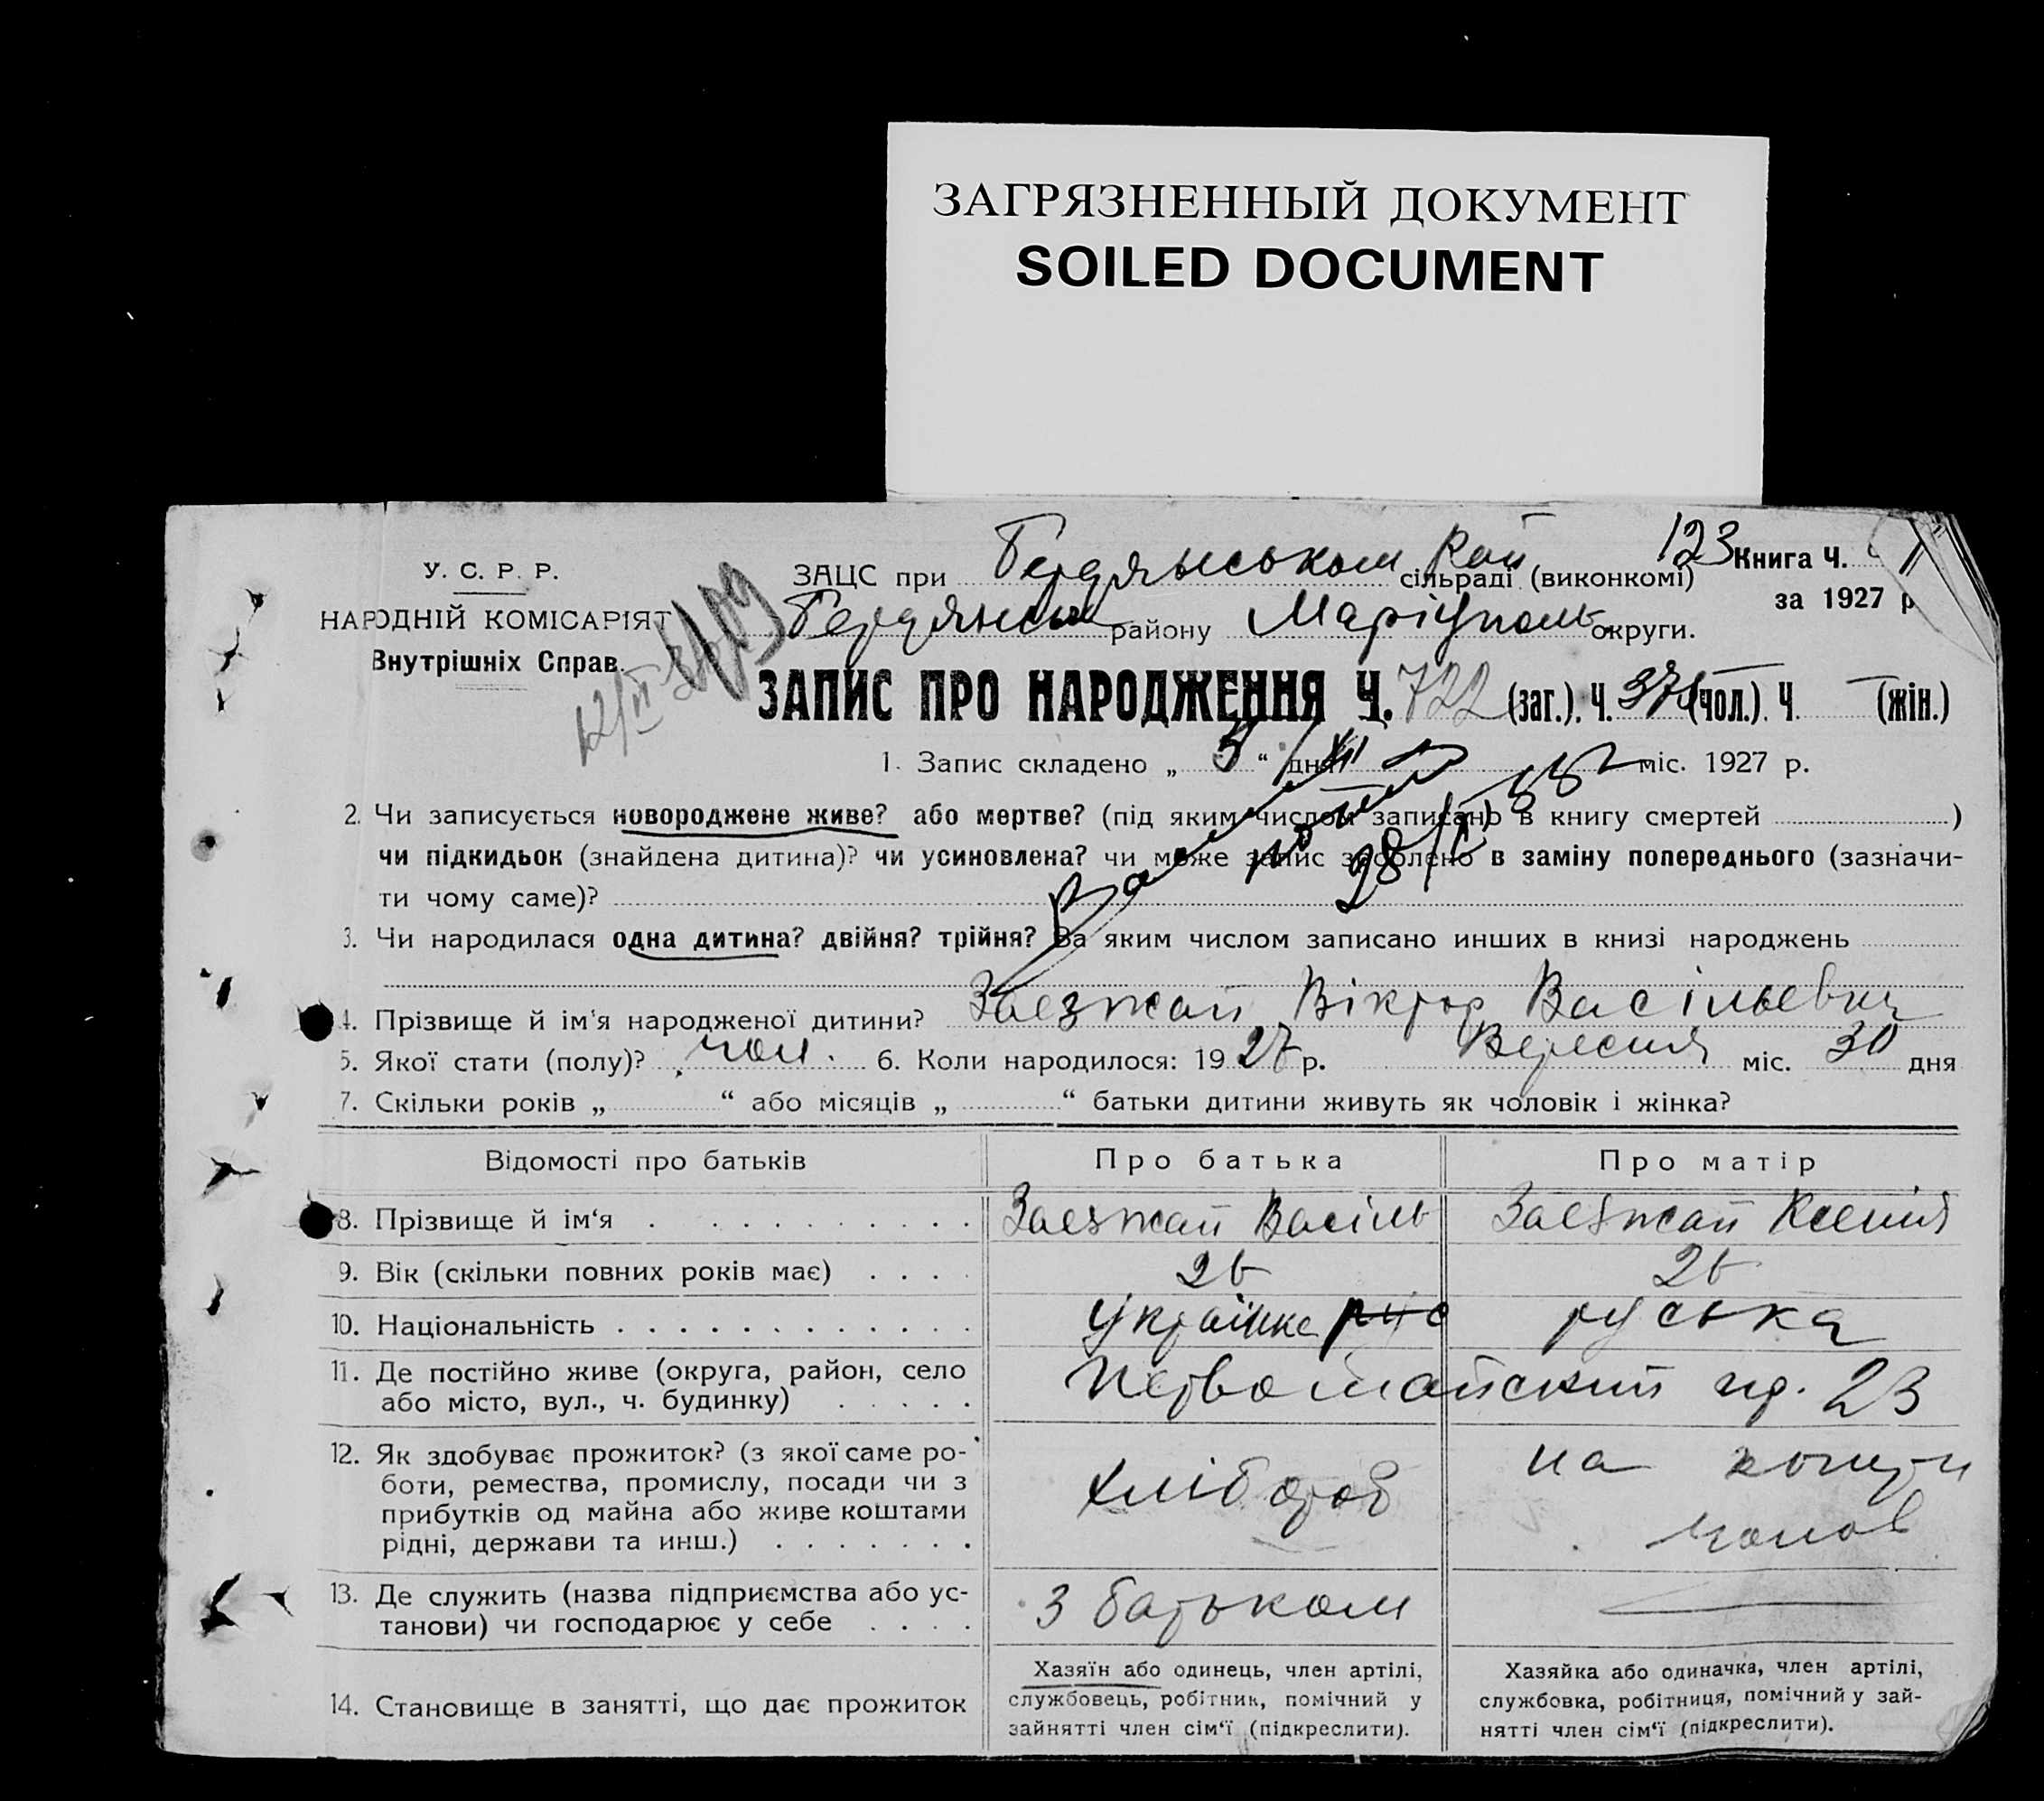 ЗАГРЯЗНЕННЫЙ ДОКУМЕНТ
SOILED DOCUMENT
У. С. Р. Р.
НАРОДНІЙ КОМІСАРІЯТ
Внутрішніх Справ.
ЗАЦС при Бердянськом Рай сільраді (виконкомі)
123 Книга Ч. 1
за 1927 р
Бердянськ району Маріуполь округи.
12/II
ЗАПИС ПРО НАРОДЖЕННЯ Ч. 722 (заг.). Ч. 371 (чол.). Ч. — (жін.)
1. Запис складено „ 5 “ дня XII міс. 1927 р.
2. Чи записується новороджене живе? або мертве? (під яким числом записано в книгу смертей )
чи підкидьок (знайдена дитина)? чи усиновлена? чи може запис зроблено в заміну попереднього (зазначи-
ти чому саме)?
3. Чи народилася одна дитина? двійня? трійня? За яким числом записано инших в книзі народжень
4. Прізвище й ім'я народженої дитини? Заезжай Віктор Васільевич
5. Якої стати (полу)? чол. 6. Коли народилося: 1927 р. Вересня міс. 30 дня
7. Скільки років „ “ або місяців „ “ батьки дитини живуть як чоловік і жінка?
Відомості про батьків Про батька Про матір
8. Прізвище й ім‘я . . . . . . . . . . Заезжай Васіль Заезжай Ксенія
9. Вік (скільки повних років має) . . . . 26 26
10. Національність . . . . . . . . . . . . . українка рус руська
11. Де постійно живе (округа, район, село
або місто, вул., ч. будинку) . . . . . Первомайский 23
12. Як здобуває прожиток? (з якої саме ро-
боти, ремества, промислу, посади чи з
прибутків од майна або живе коштами
рідні, держави та инш.) . . . . . . . хлібороб на кошти чолов
13. Де служить (назва підприємства або ус-
танови) чи господарює у себе . . . . з батьком —
14. Становище в занятті, що дає прожиток
Хазяїн або одинець, член артілі,
службовець, робітник, помічний у
зайнятті член сім‘ї (підкреслити).
Хазяйка або одиначка, член артілі,
службовка, робітниця, помічний у зай-
нятті член сім‘ї (підкреслити).